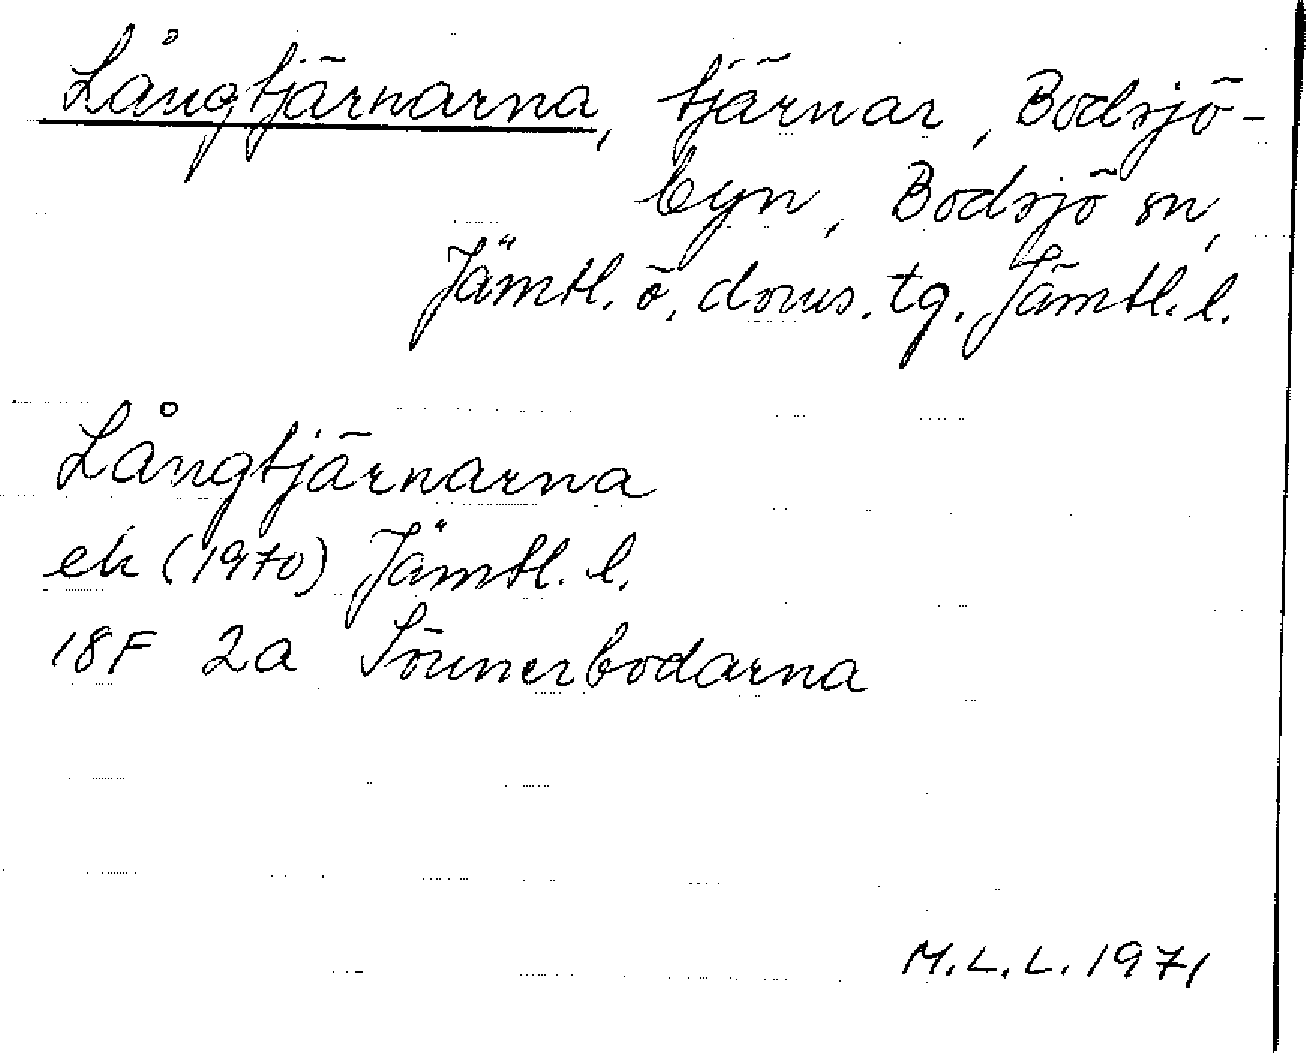 Långtjärnarna, tjärnar, Bodsjö-
byn, Bodsjö sn,
Jämtl. ö. doms. tg. Jämtl. l.
Långtjärnarna
ek (1970) Jämtl. l.
18F 2a Sörmerbodarna
M.L.L. 1971